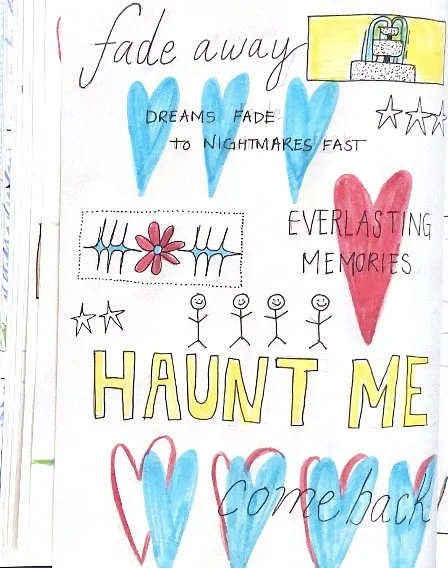 fade away
DREAMS FADE
to NIGHTMARES FAST
EVERLASTING
MEMORIES
HAUNT ME
come back!